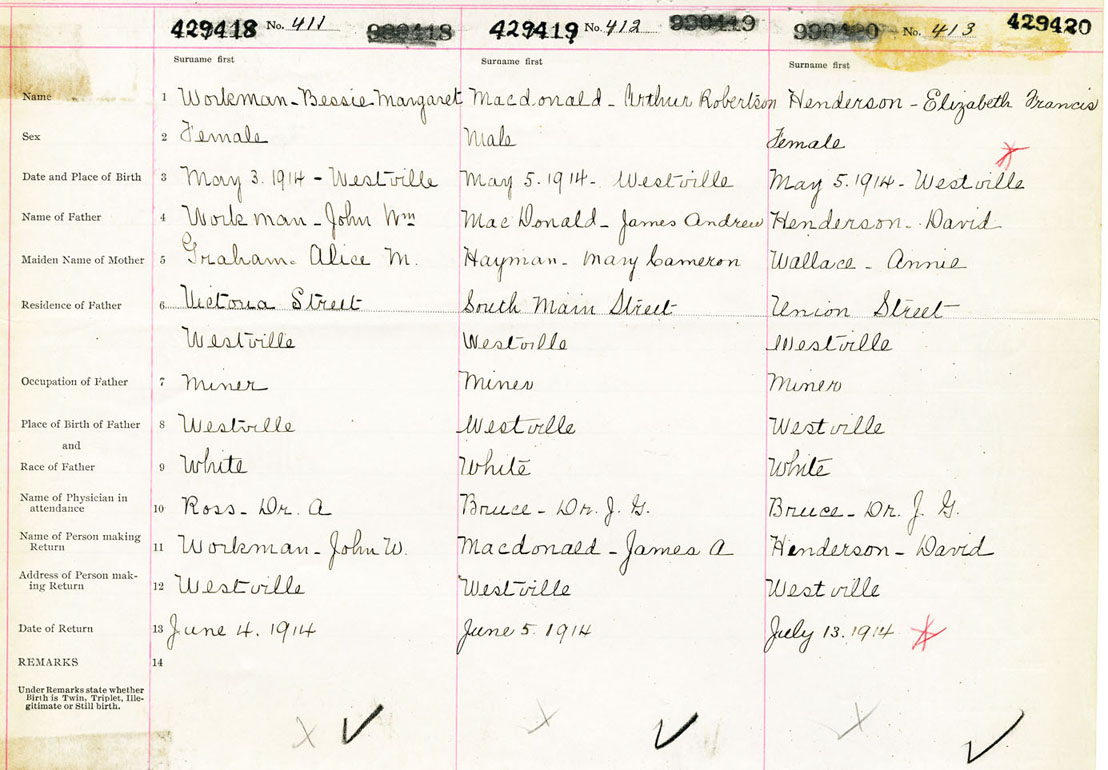 429418 No. 411 990418 429419 No. 412 990419 990420 No. 413 429420
Surname first Surname first Surname first
Name 1 Workman - Bessie Margaret Macdonald - Arthur Robertson Henderson - Elizabeth Francis
Sex 2 Female Male Female
Date and Place of Birth 3 May 3. 1914 - Westville May 5. 1914 - Westville May 5. 1914 - Westville
Name of Father 4 Workman - John Wm MacDonald - James Andrew Henderson - David
Maiden Name of Mother 5 Graham - Alice M. Hayman - Mary Cameron Wallace - Annie
Residence of Father 6 Victoria Street South Main Street Union Street
Westville Westville Westville
Occupation of Father 7 Miner Miner Miner
Place of Birth of Father 8 Westville Westville Westville
and
Race of Father 9 White White White
Name of Physician in
attendance 10 Ross - Dr. A Bruce - Dr. J. G. Bruce - Dr. J. G.
Name of Person making
Return 11 Workman - John W. Macdonald - James A Henderson - David
Address of Person mak-
ing Return 12 Westville Westville Westville
Date of Return 13 June 4. 1914 June 5 1914 July 13. 1914
REMARKS 14
Under Remarks state whether
Birth is Twin, Triplet, Ille-
gitimate or Still birth.